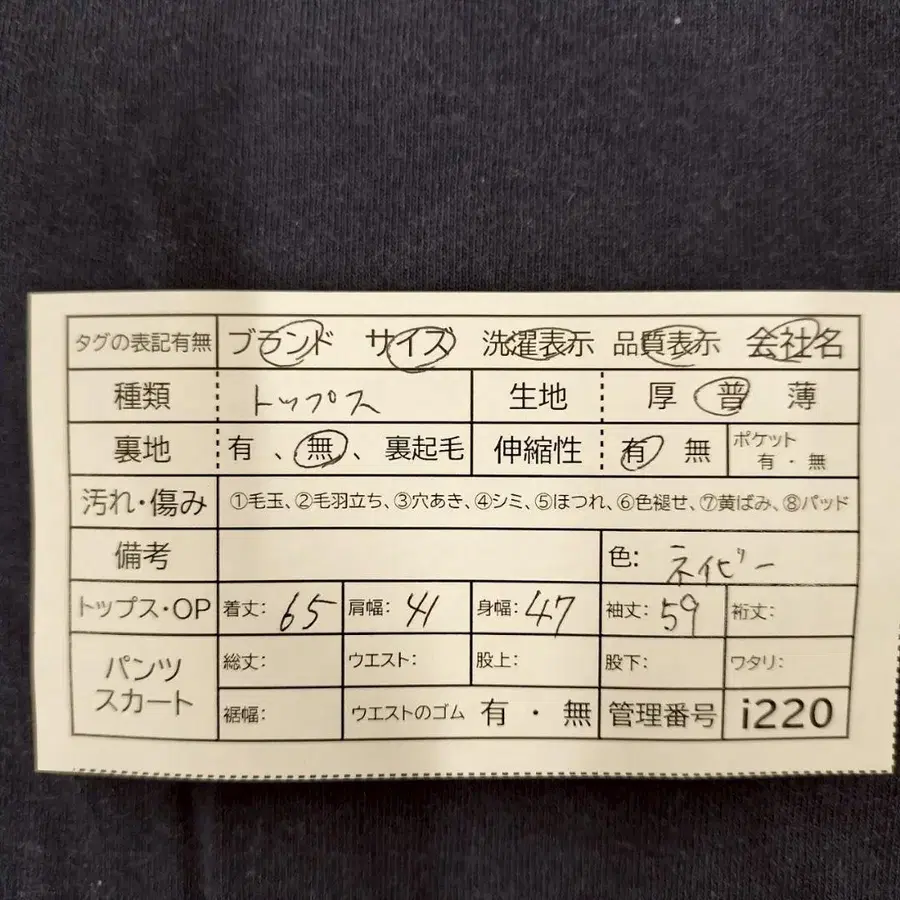 タグの表記有無 ブランド サイズ 洗濯表示 品質表示 会社名
種類 トップス 生地 厚 普 薄
裏地 有、無、裏起毛 伸縮性 有 無 ポケット 有・無
汚れ・傷み ①毛玉、②毛羽立ち、③穴あき、④シミ、⑤ほつれ、⑥色褪せ、⑦黄ばみ、⑧パッド
備考 色: ネイビー
トップス・OP 着丈: 65 肩幅: 41 身幅: 47 袖丈: 59 裄丈:
パンツ スカート 総丈: ウエスト: 股上: 股下: ワタリ:
裾幅: ウエストのゴム 有・無 管理番号 i220